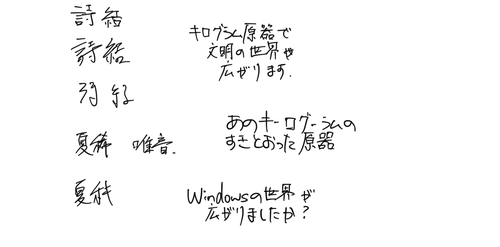 詩結
詩結
夏稀 唯音.
夏秋
キログラム原器で
文明の世界や
広がります.
あのキーログーラムの
すきとおった原器
Windowsの世界が
広がりましたか?